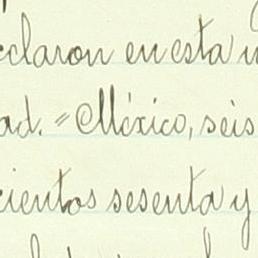 claron en esta
ad. = México, seis
cientos sesenta y